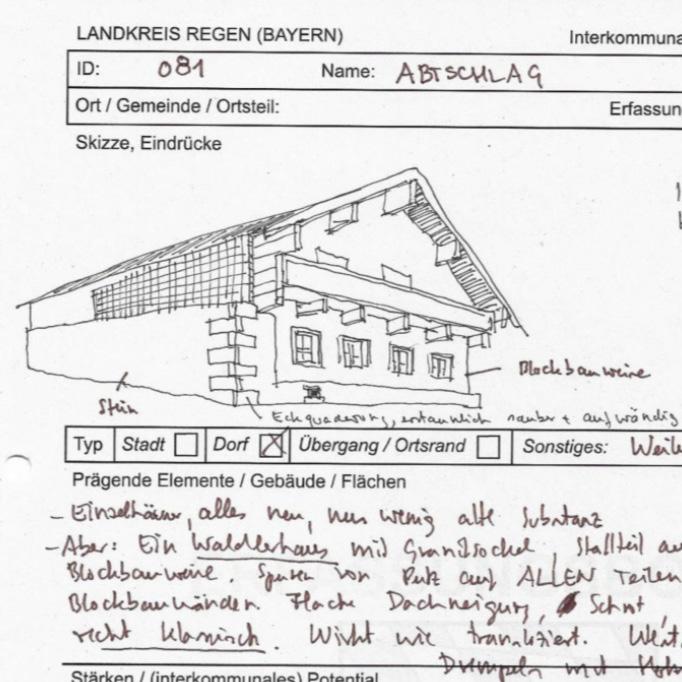 LANDKREIS REGEN (BAYERN) Interkommuna
ID: 081 Name: ABTSCHLAG
Ort / Gemeinde / Ortsteil: Erfassun
Skizze, Eindrücke
Blockbauweise
Stein
Eckquaderung, erstaunlich sauber + aufwändig
Typ Stadt Dorf Übergang / Ortsrand Sonstiges: Weile
Prägende Elemente / Gebäude / Flächen
- Einzelhäuser, alles neu, nur wenig alte Substanz
- Aber: Ein Waldlerhaus mit Granitsockel, Stallteil au
Blockbauweise. Spuren von Putz auf ALLEN Teilen
Blockbauwänden. Flache Dachneigung, Schrot,
recht klassisch. Wirkt wie transloziert. Weit.
Drempeln mit
Stärken / (interkommunales) Potential